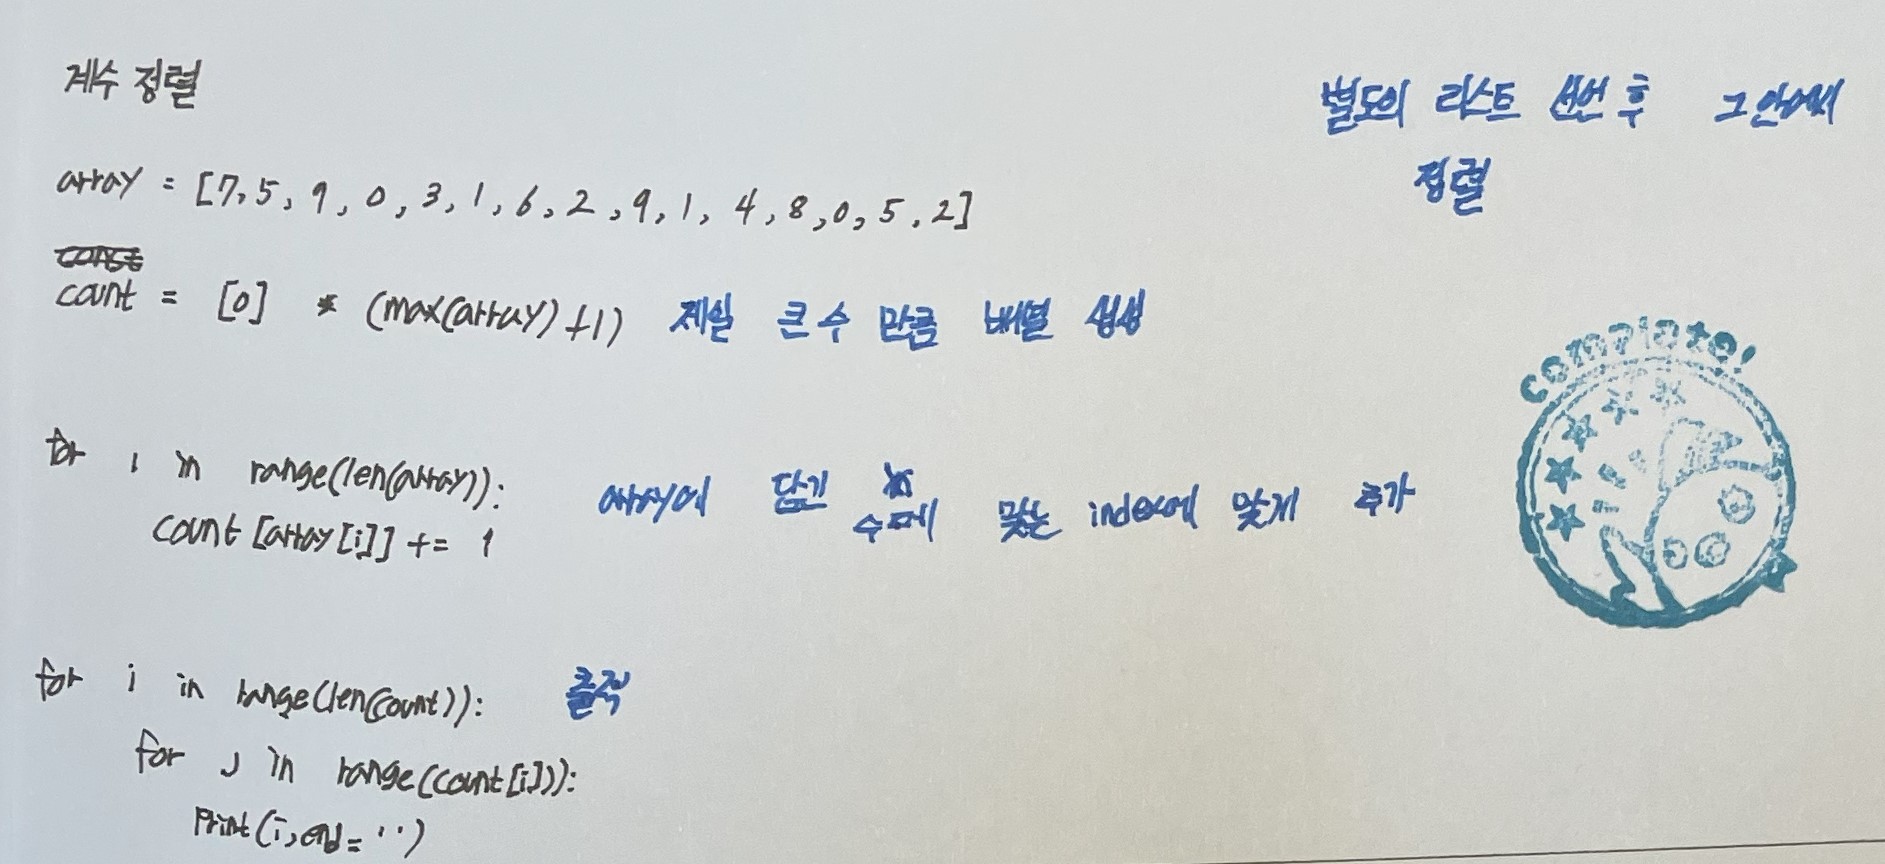 계수 정렬
별도의 리스트 선언 후 그 안에서
정렬
array = [7, 5, 9, 0, 3, 1, 6, 2, 9, 1, 4, 8, 0, 5, 2]
count = [0] * (max(array)+1) 제일 큰 수 만큼 배열 생성
Complete!
for i in range(len(array)):
count [array[i]] += 1 array에 담긴 수에 맞는 index에 맞게 추가
for i in range(len(count)): 출력
for j in range(count[i]):
print(i, end=' ')